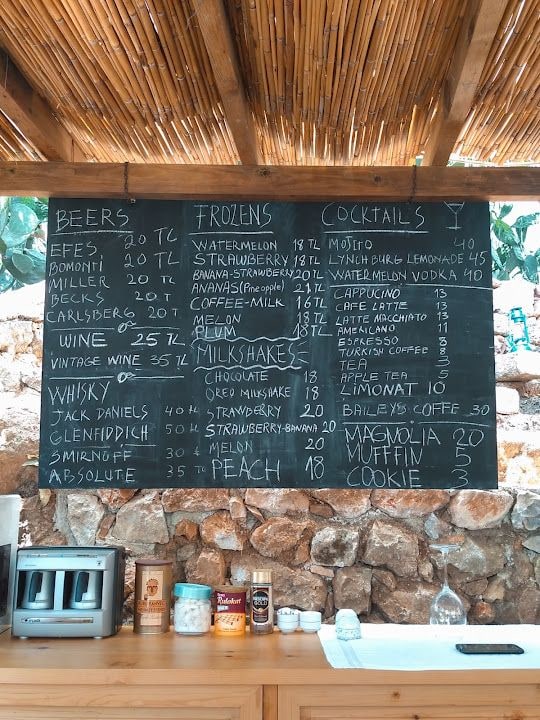 BEERS
EFES 20 TL
BOMONTI 20 TL
MILLER 20 TL
BECKS 20 T
CARLSBERG 20 T
WINE 25 TL
VINTAGE WINE 35 TL
WHISKY
JACK DANIELS 40
GLENFIDDICH 50
SMIRNOFF 30
ABSOLUTE 35
FROZENS
WATERMELON 18 TL
STRAWBERRY 18 TL
BANANA-STRAWBERRY 20 TL
ANANAS (Pineapple) 21 TL
COFFEE-MILK 16 TL
MELON 18 TL
PLUM 18 TL
MILKSHAKES
CHOCOLATE 18
OREO MILKSHAKE 18
STRAWBERRY 20
STRAWBERRY-BANANA 20
MELON 20
PEACH 18
COCKTAILS
MOJITO 40
LYNCHBURG LEMONADE 45
WATERMELON VODKA 40
CAPPUCINO 13
CAFE LATTE 13
LATTE MACCHIATO 13
AMERICANO 11
ESPRESSO 8
TURKISH COFFEE 8
TEA 3
APPLE TEA 5
LIMONAT 10
BAILEYS COFFE 30
MAGNOLIA 20
MUFFFIN 5
COOKIE 3
GOLD